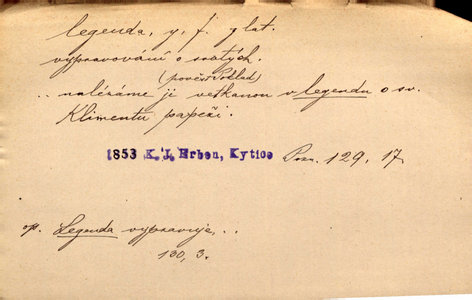 legenda, y, f. z lat.
vypravování o svatých.
(pověst Poklad)
.. nalézáme ji vetkanou v legendu o sv.
Klimentu papeži.
1853 K. J. Erben, Kytice Pozn. 129, 17.
op. Legenda vypravuje, ..
130, 3.